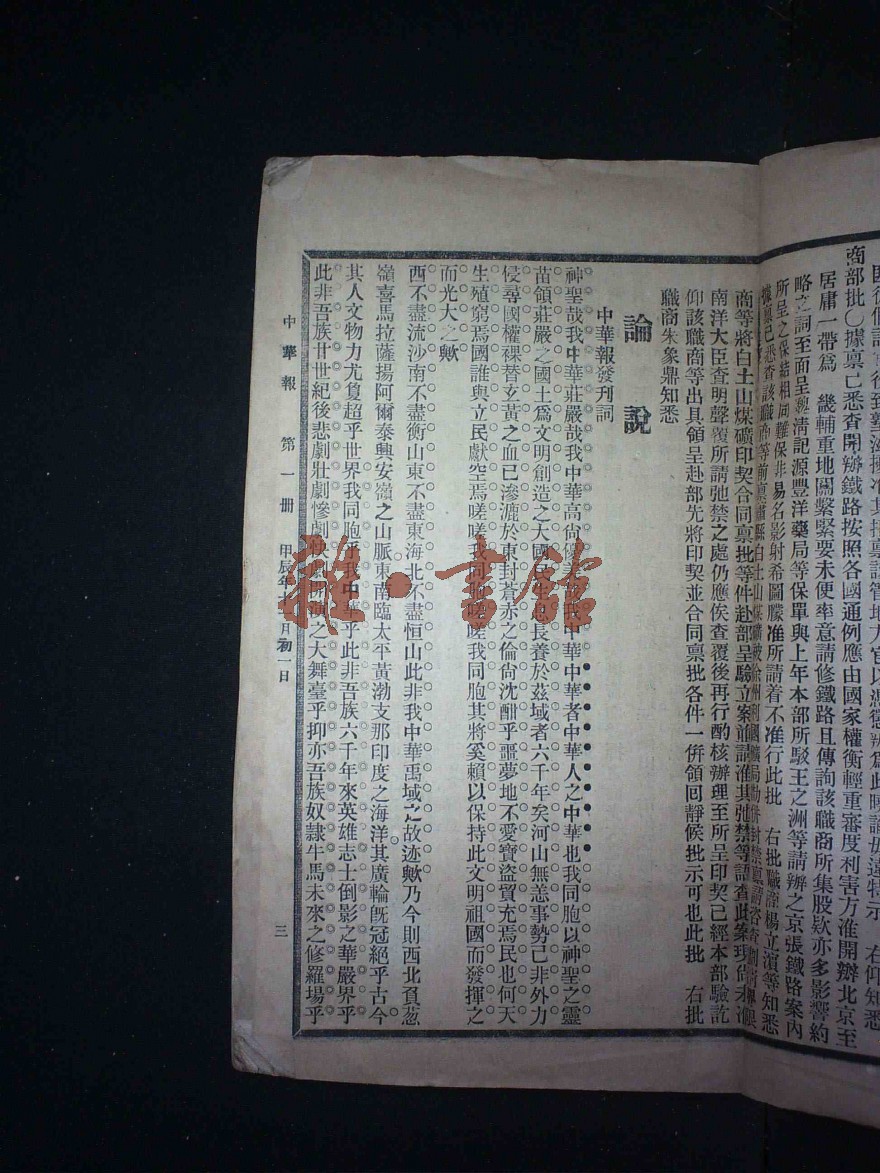 商部批○據稟已悉查開辦鐵路按照各國通例應由國家權衡輕重審度利害方准開辦北京至
居庸一帶為 畿輔重地關繫緊要未便率意請修鐵路且傳詢該職商所集股欵亦多影響約
略之詞至面呈輕清記源豐洋藥局等保單與上年本部所駁王之洲等請辦之京張鐵路案內
所呈之保結相同難保非易名影射希圖朦准所請着不准行此批 右批職
楊立濱等知悉
商等將白土山煤礦印契合同稟批等件赴部呈驗立案並請准其弛禁等語查此案現
南洋大臣查明聲覆所請弛禁之處仍應俟查覆後再行酌核辦理至所呈印契已經本部驗訖
仰該職商等出具領呈赴部先將印契並合同稟批各件一併領回靜候批示可也此批 右批
職商朱象鼎知悉
論說
中華報發刊詞
神聖哉我中華莊嚴哉我中華高尚優美哉我中華中華者中華人之中華也我同胞以神聖之靈
苗領莊嚴之國土為文明創造之大國民生息長養於茲域者六千年矣河山無恙事勢已非外力
侵尋國權裸替玄黃之血已滲漉於東封蒼赤之倫尚沈酣乎噩夢地不愛寶盜貿充焉民也何夭
生殖窮焉國誰與立民獻空焉嗟嗟我同胞嗟嗟我同胞其將奚賴以保持此文明祖國而發揮之
而光大之歟
西不盡流沙南不盡衡山東不盡東海北不盡恒山此非我中華禹域之故迹歟乃今則西北負葱
嶺喜馬拉薩揚阿爾泰興安嶺之山脈東南臨太平黃渤支那印度之海洋其廣輪既冠絕乎古今
其人文物力尤夐超乎世界我同胞乎我中華乎此非吾族六千年來英雄志士倒影之華嚴界乎
此非吾族廿世紀後悲劇壯劇慘劇快劇開演之大舞臺乎抑亦吾族奴隸牛馬未來之修羅場乎
中華報 第一冊 甲辰年十一月初一日
三
雜·書館